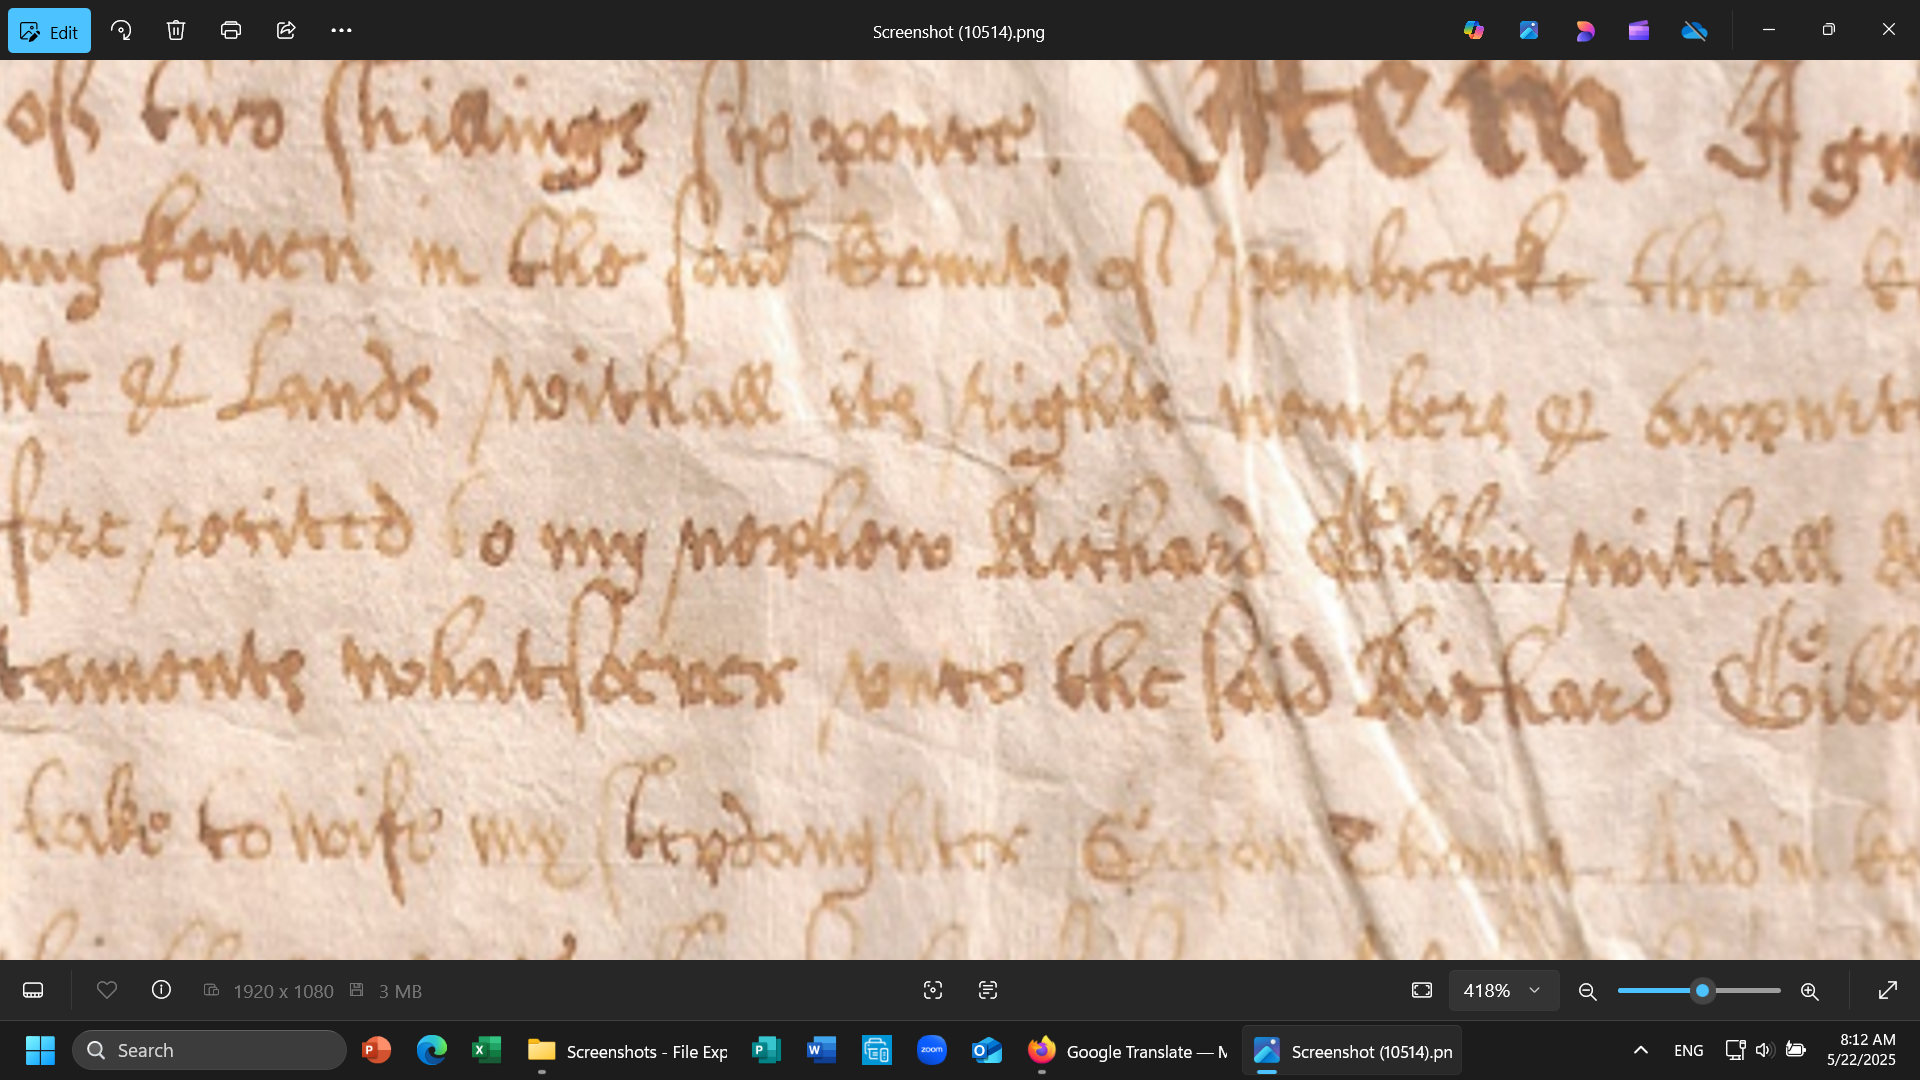 Edit
Screenshot (10514).png
of two shillings six pence. Item I giv
my kowen in the said County of Pembrock there
nt & Lands withall its rights members & appurte
fore recited to my nephew Richard Gibbin withall
taments whatsoever unto the said Richard Gibb
take to wife my stepdaughter Susan Thomas And
1920 x 1080 3 MB
418%
Search
Screenshots - File Exp
zoom
Google Translate — M
Screenshot (10514).pn
ENG
8:12 AM
5/22/2025